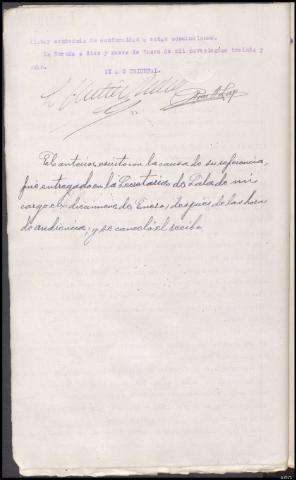 dictar sentencia de conformidad a estas conclusiones.
La Coruña a diez y nueve de Enero de mil novecientos treinta y
seis.
El anterior escrito en la causa de su referencia,
fué entregado en la Secretaría de Sala de mi
cargo el diecinueve de Enero, después de las horas
de audiencia, y se canceló el recibo